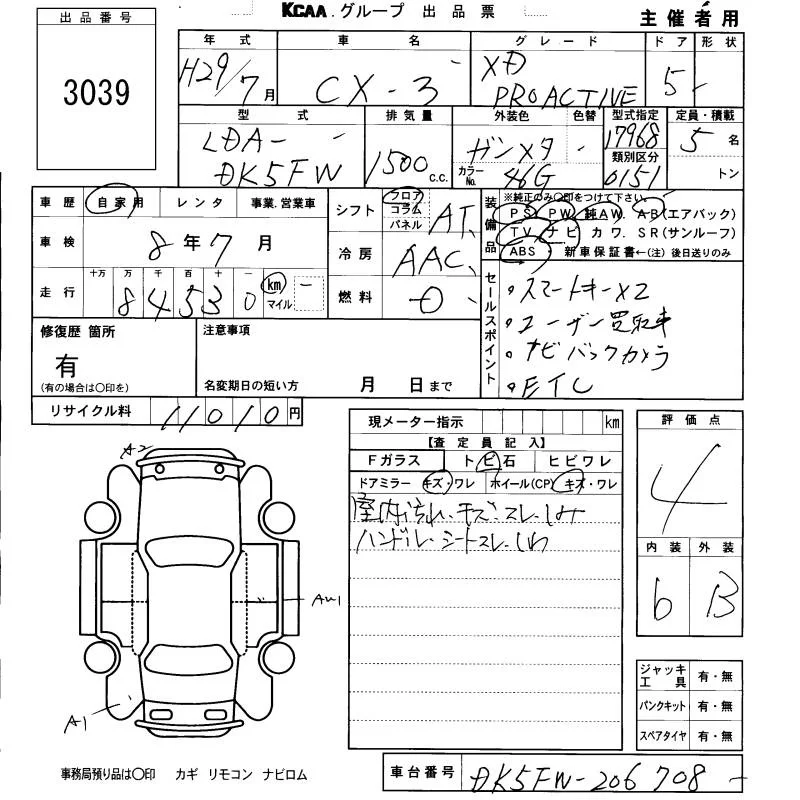 KCAA.グループ 出品票
主催者用
出品番号
3039
年式 車名 グレード ドア 形状
H29/7月 CX-3 - XD PROACTIVE 5 -
型式 排気量 外装色 色替 型式指定 定員・積載
LDA- - DK5FW 1500 c.c. ガンメタ - カラーNo. 46G 17968 5名
類別区分
0151 トン
車歴 自家用 レンタ 事業.営業車
車検 8年7月
走行 十万 万 千 百 十 一 km マイル
84530 -
シフト フロア コラム パネル AT
冷房 AAC
燃料 D -
装備品
※純正のみ〇印をつけて下さい。
PS PW 純AW. AB(エアバック)
TV ナビ カワ. SR(サンルーフ)
ABS・新車保証書←(注)後日送りのみ
セールスポイント
・スマートキーX2
・ユーザー買取車
・ナビ バックカメラ
・ETC
修復歴 箇所
有
(有の場合は〇印を)
注意事項
名変期日の短い方 月 日まで
リサイクル料 11010円
現メーター指示 km
【査定員記入】
Fガラス トビ石 ヒビワレ
ドアミラー キズ・ワレ ホイール(CP) キズ・ワレ
室内汚れ・キズ・スレ・しみ
ハンドル・シートスレ・しわ
評価点
4
内装 外装
6 B
A2
AW1
A1
ジャッキ工具 有・無
パンクキット 有・無
スペアタイヤ 有・無
事務局預り品は〇印 カギ リモコン ナビロム
車台番号 DK5FW-206708 -